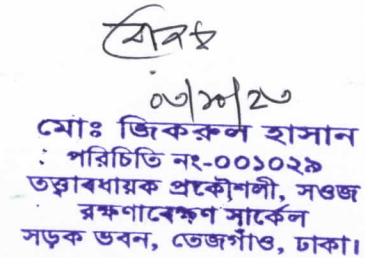 ০৩/১০/২৩
মোঃ জিকরুল হাসান
পরিচিতি নং-০০১০২৯
তত্ত্বাবধায়ক প্রকৌশলী, সওজ
রক্ষণাবেক্ষণ সার্কেল
সড়ক ভবন, তেজগাঁও, ঢাকা।